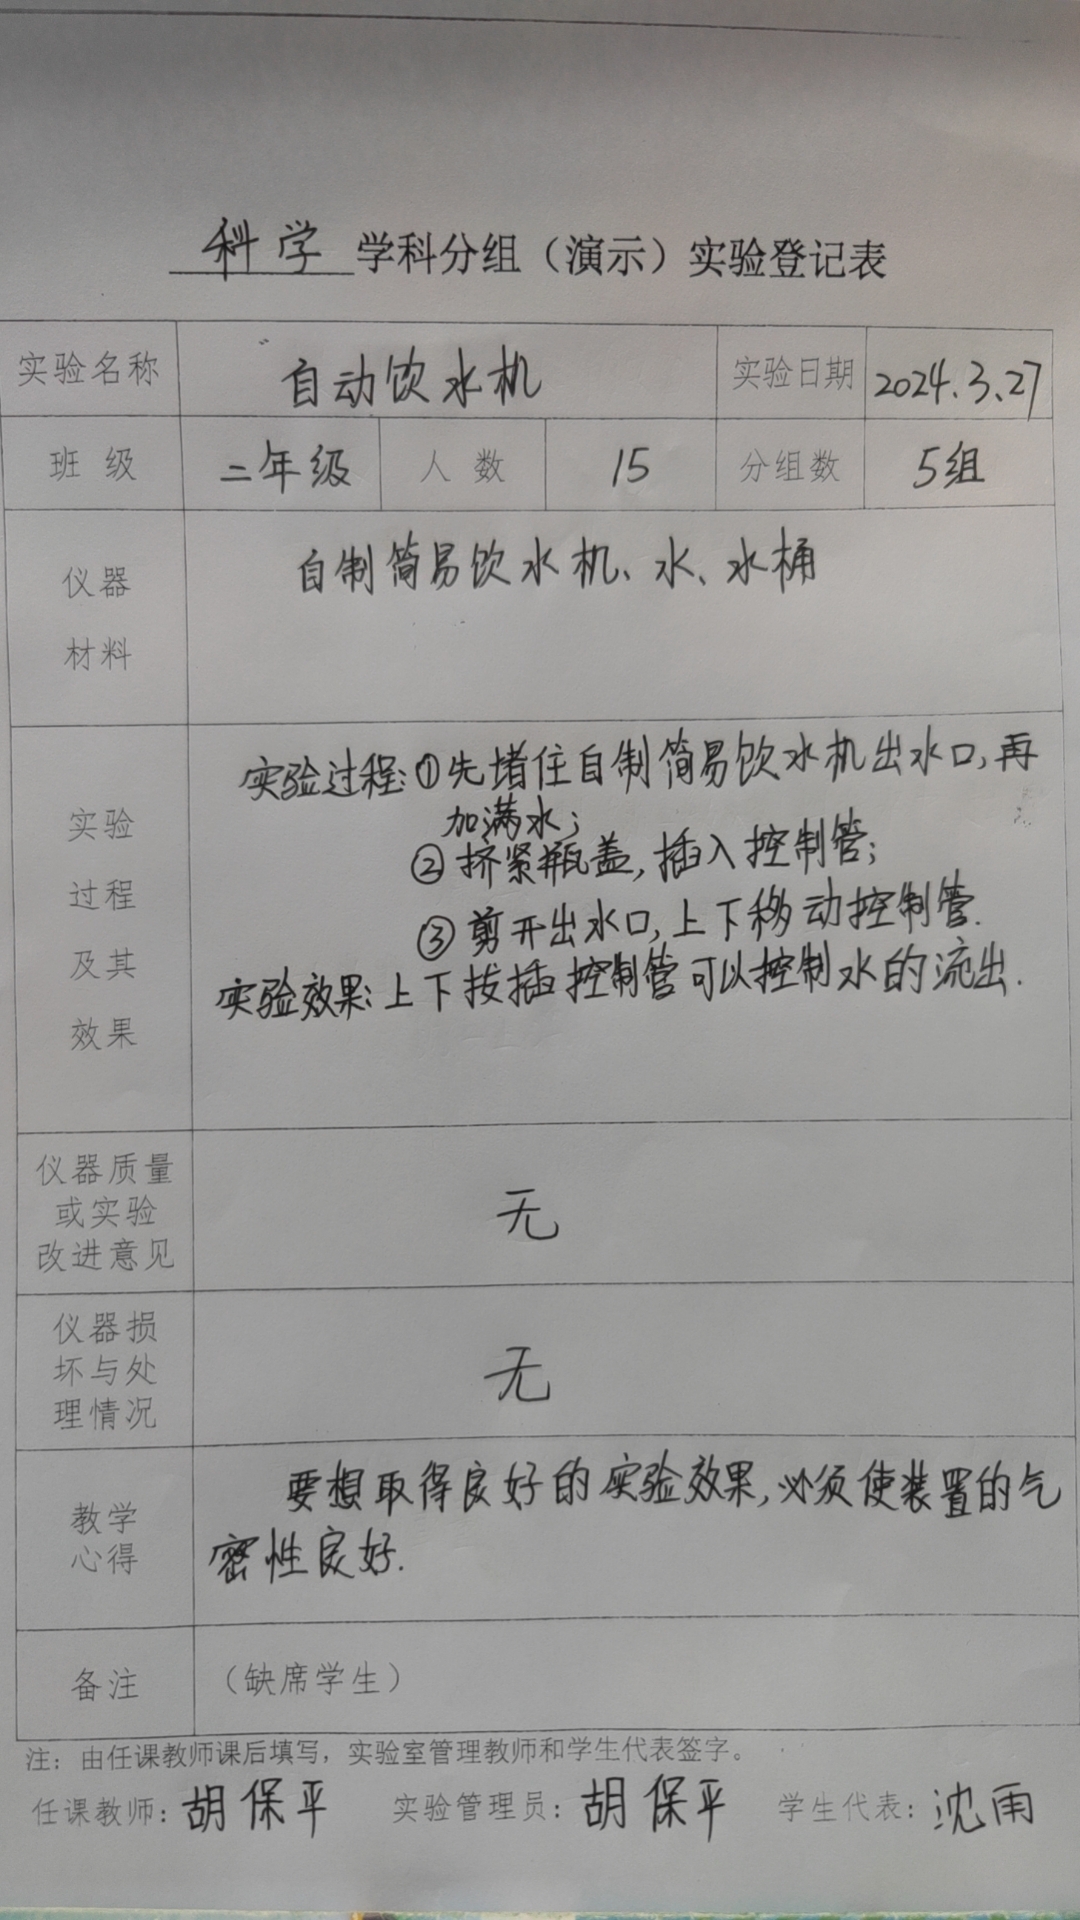 科学 学科分组（演示）实验登记表
实验名称 自动饮水机 实验日期 2024.3.27
班 级 二年级 人 数 15 分组数 5组
仪器
材料
自制简易饮水机、水、水桶
实验
过程
及其
效果
实验过程:①先堵住自制简易饮水机出水口,再
加满水;
②挤紧瓶盖,插入控制管;
③剪开出水口,上下移动控制管.
实验效果:上下拔插控制管可以控制水的流出.
仪器质量
或实验
改进意见
无
仪器损
坏与处
理情况
无
教学
心得
要想取得良好的实验效果,必须使装置的气
密性良好.
备注 （缺席学生）
注：由任课教师课后填写，实验室管理教师和学生代表签字。
任课教师：胡保平 实验管理员：胡保平 学生代表：沈雨